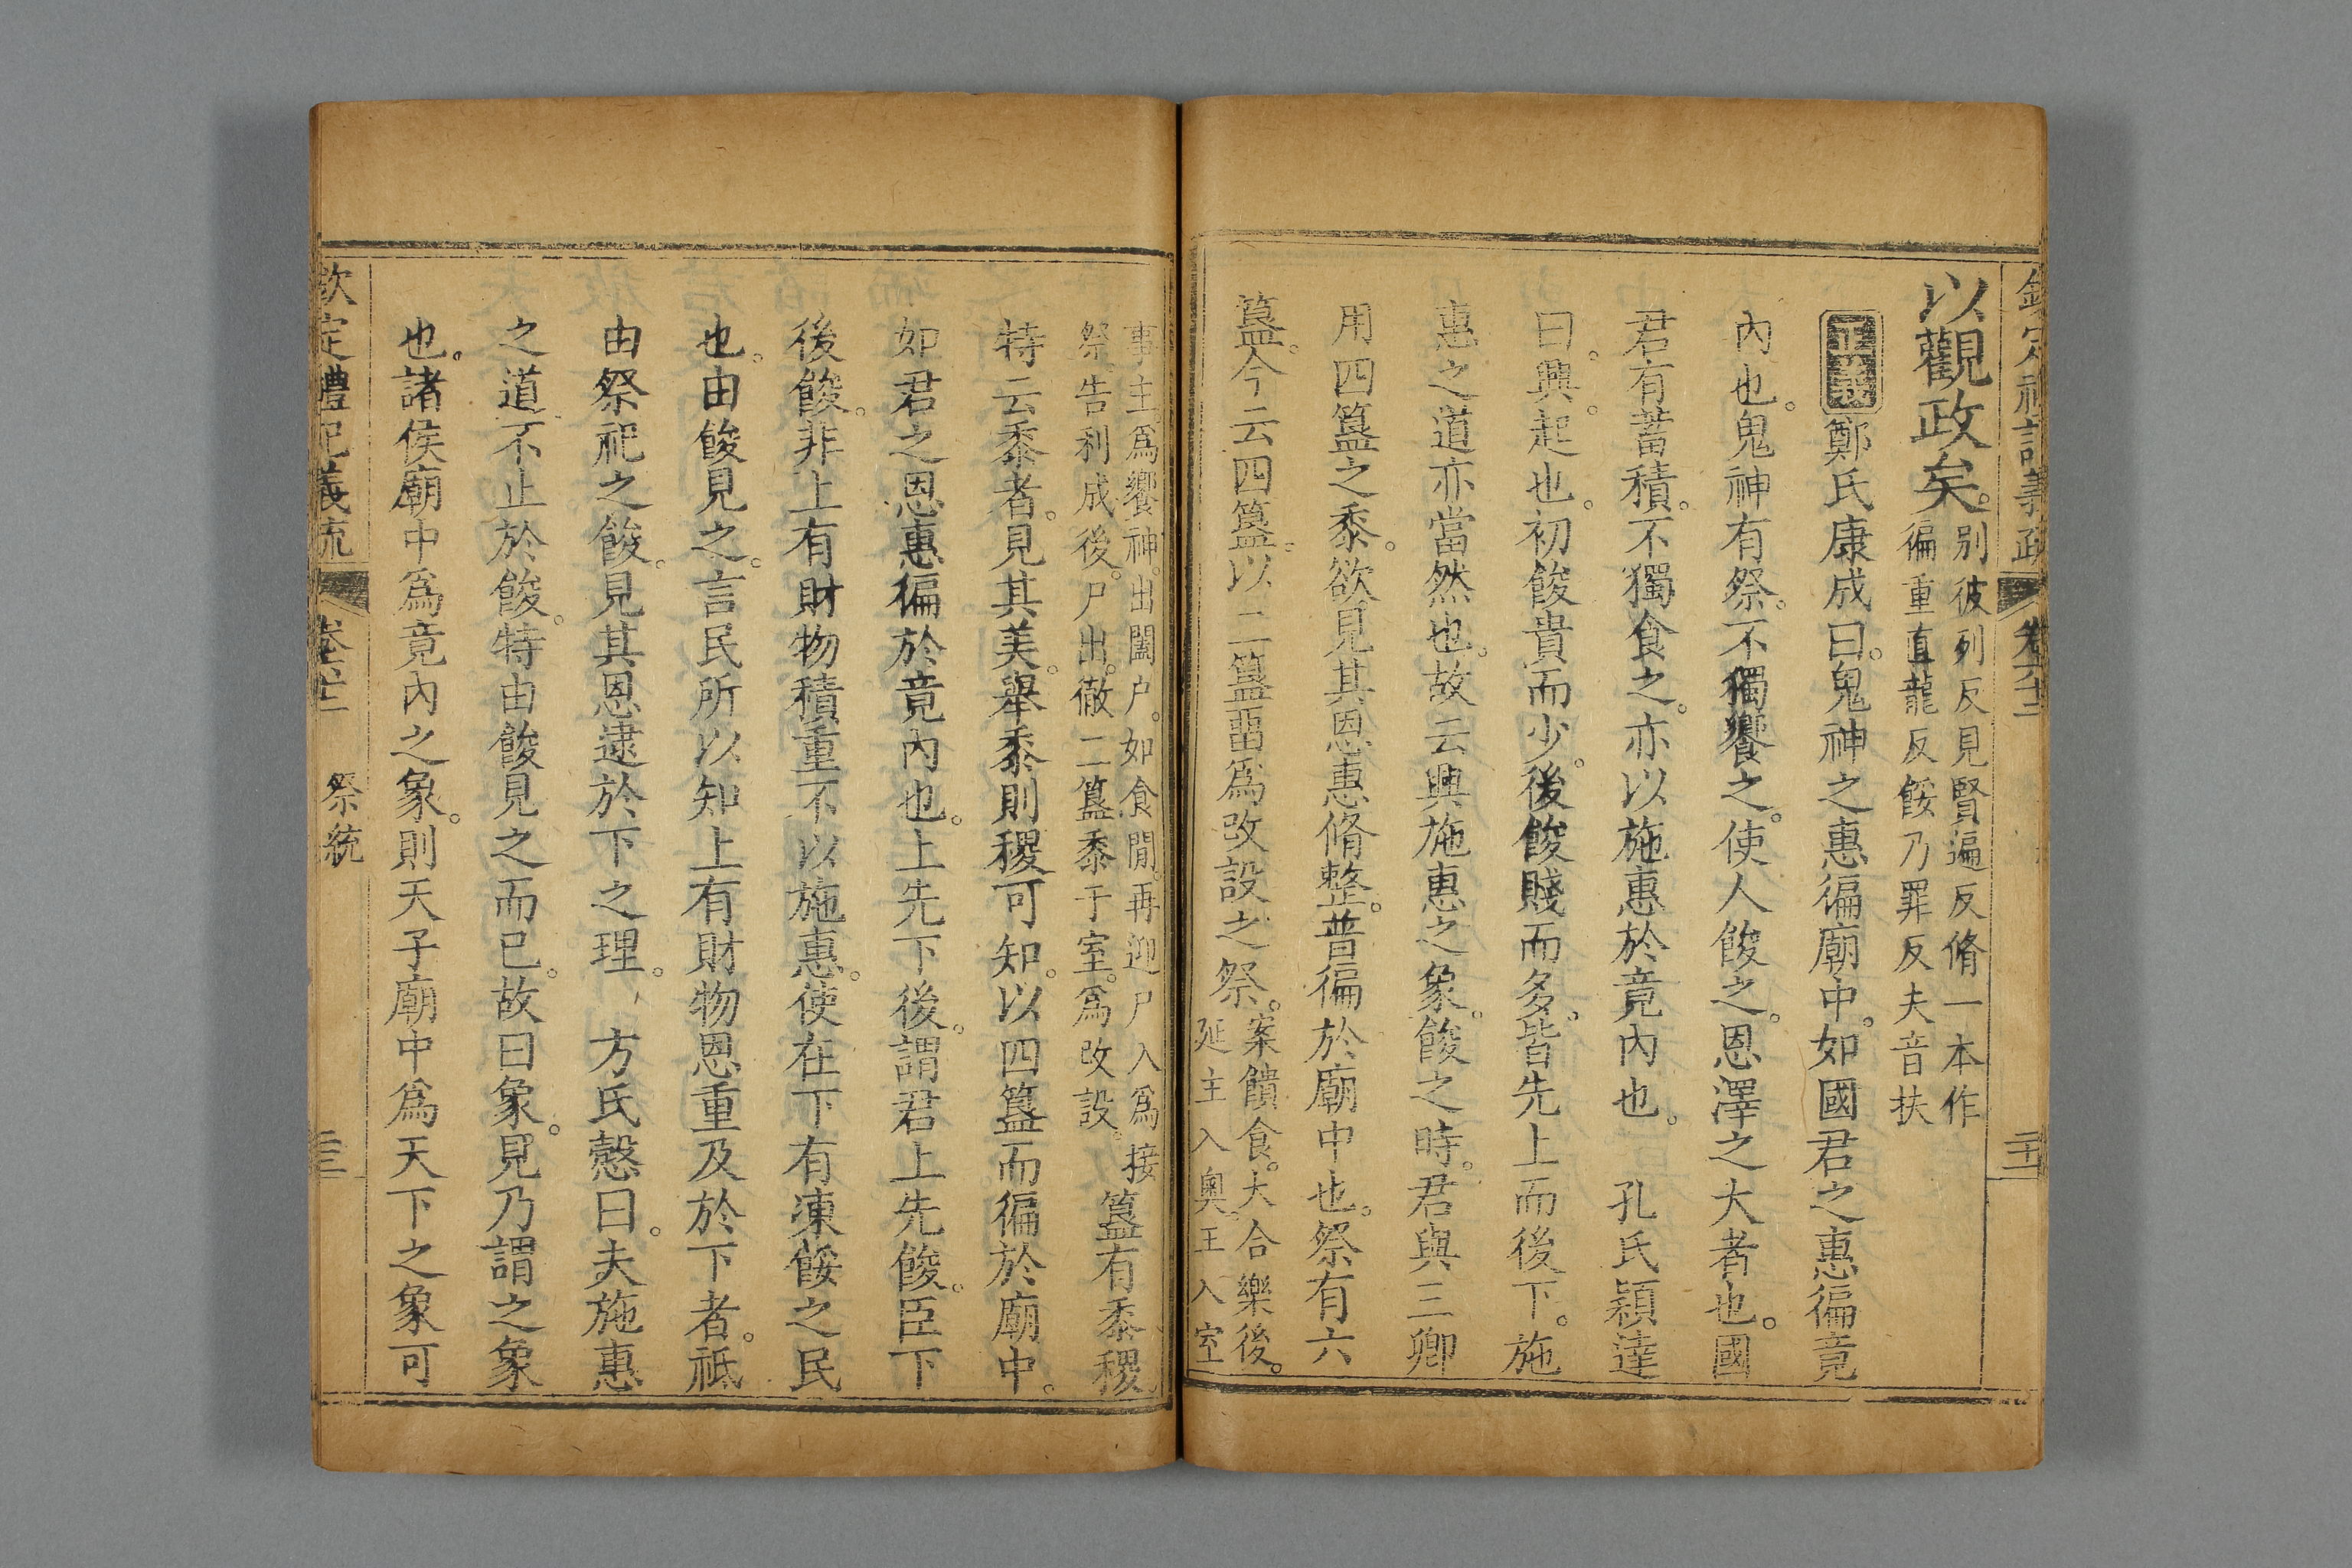 以觀政矣。別彼列反見賢遍反脩一本作
徧重直龍反餒乃罪反夫音扶
正義鄭氏康成曰。鬼神之惠徧廟中。如國君之惠徧竟
內也。鬼神有祭。不獨饗之。使人餕之。恩澤之大者也。國
君有蓄積。不獨食之。亦以施惠於竟內也。 孔氏穎達
曰。興。起也。初餕貴而少。後餕賤而多。皆先上而後下。施
惠之道亦當然也。故云興施惠之象。餕之時。君與三卿
用四簋之黍。欲見其恩惠脩整。普徧於廟中也。祭有六
簋。今云四簋。以二簋畱爲改設之祭。案饋食。大合樂後。
延主入奧。王入室
事主。爲饗神。出闔户。如食閒。再迎尸入爲接
祭。告利成後。尸出。徹二簋黍于室。爲改設。
簋有黍稷
特云黍者。見其美。舉黍則稷可知。以四簋而徧於廟中。
如君之恩惠徧於竟內也。上先下後。謂君上先餕。臣下
後餕。非上有財物積重不以施惠。使在下有凍餒之民
也。由餕見之。言民所以知上有財物恩重及於下者。祗
由祭祀之餕。見其恩逮於下之理。 方氏慤曰。夫施惠
之道不止於餕。特由餕見之而已。故曰象。見乃謂之象
也。諸侯廟中爲竟內之象。則天子廟中爲天下之象可
欽定禮記義疏 卷六十二 祭統